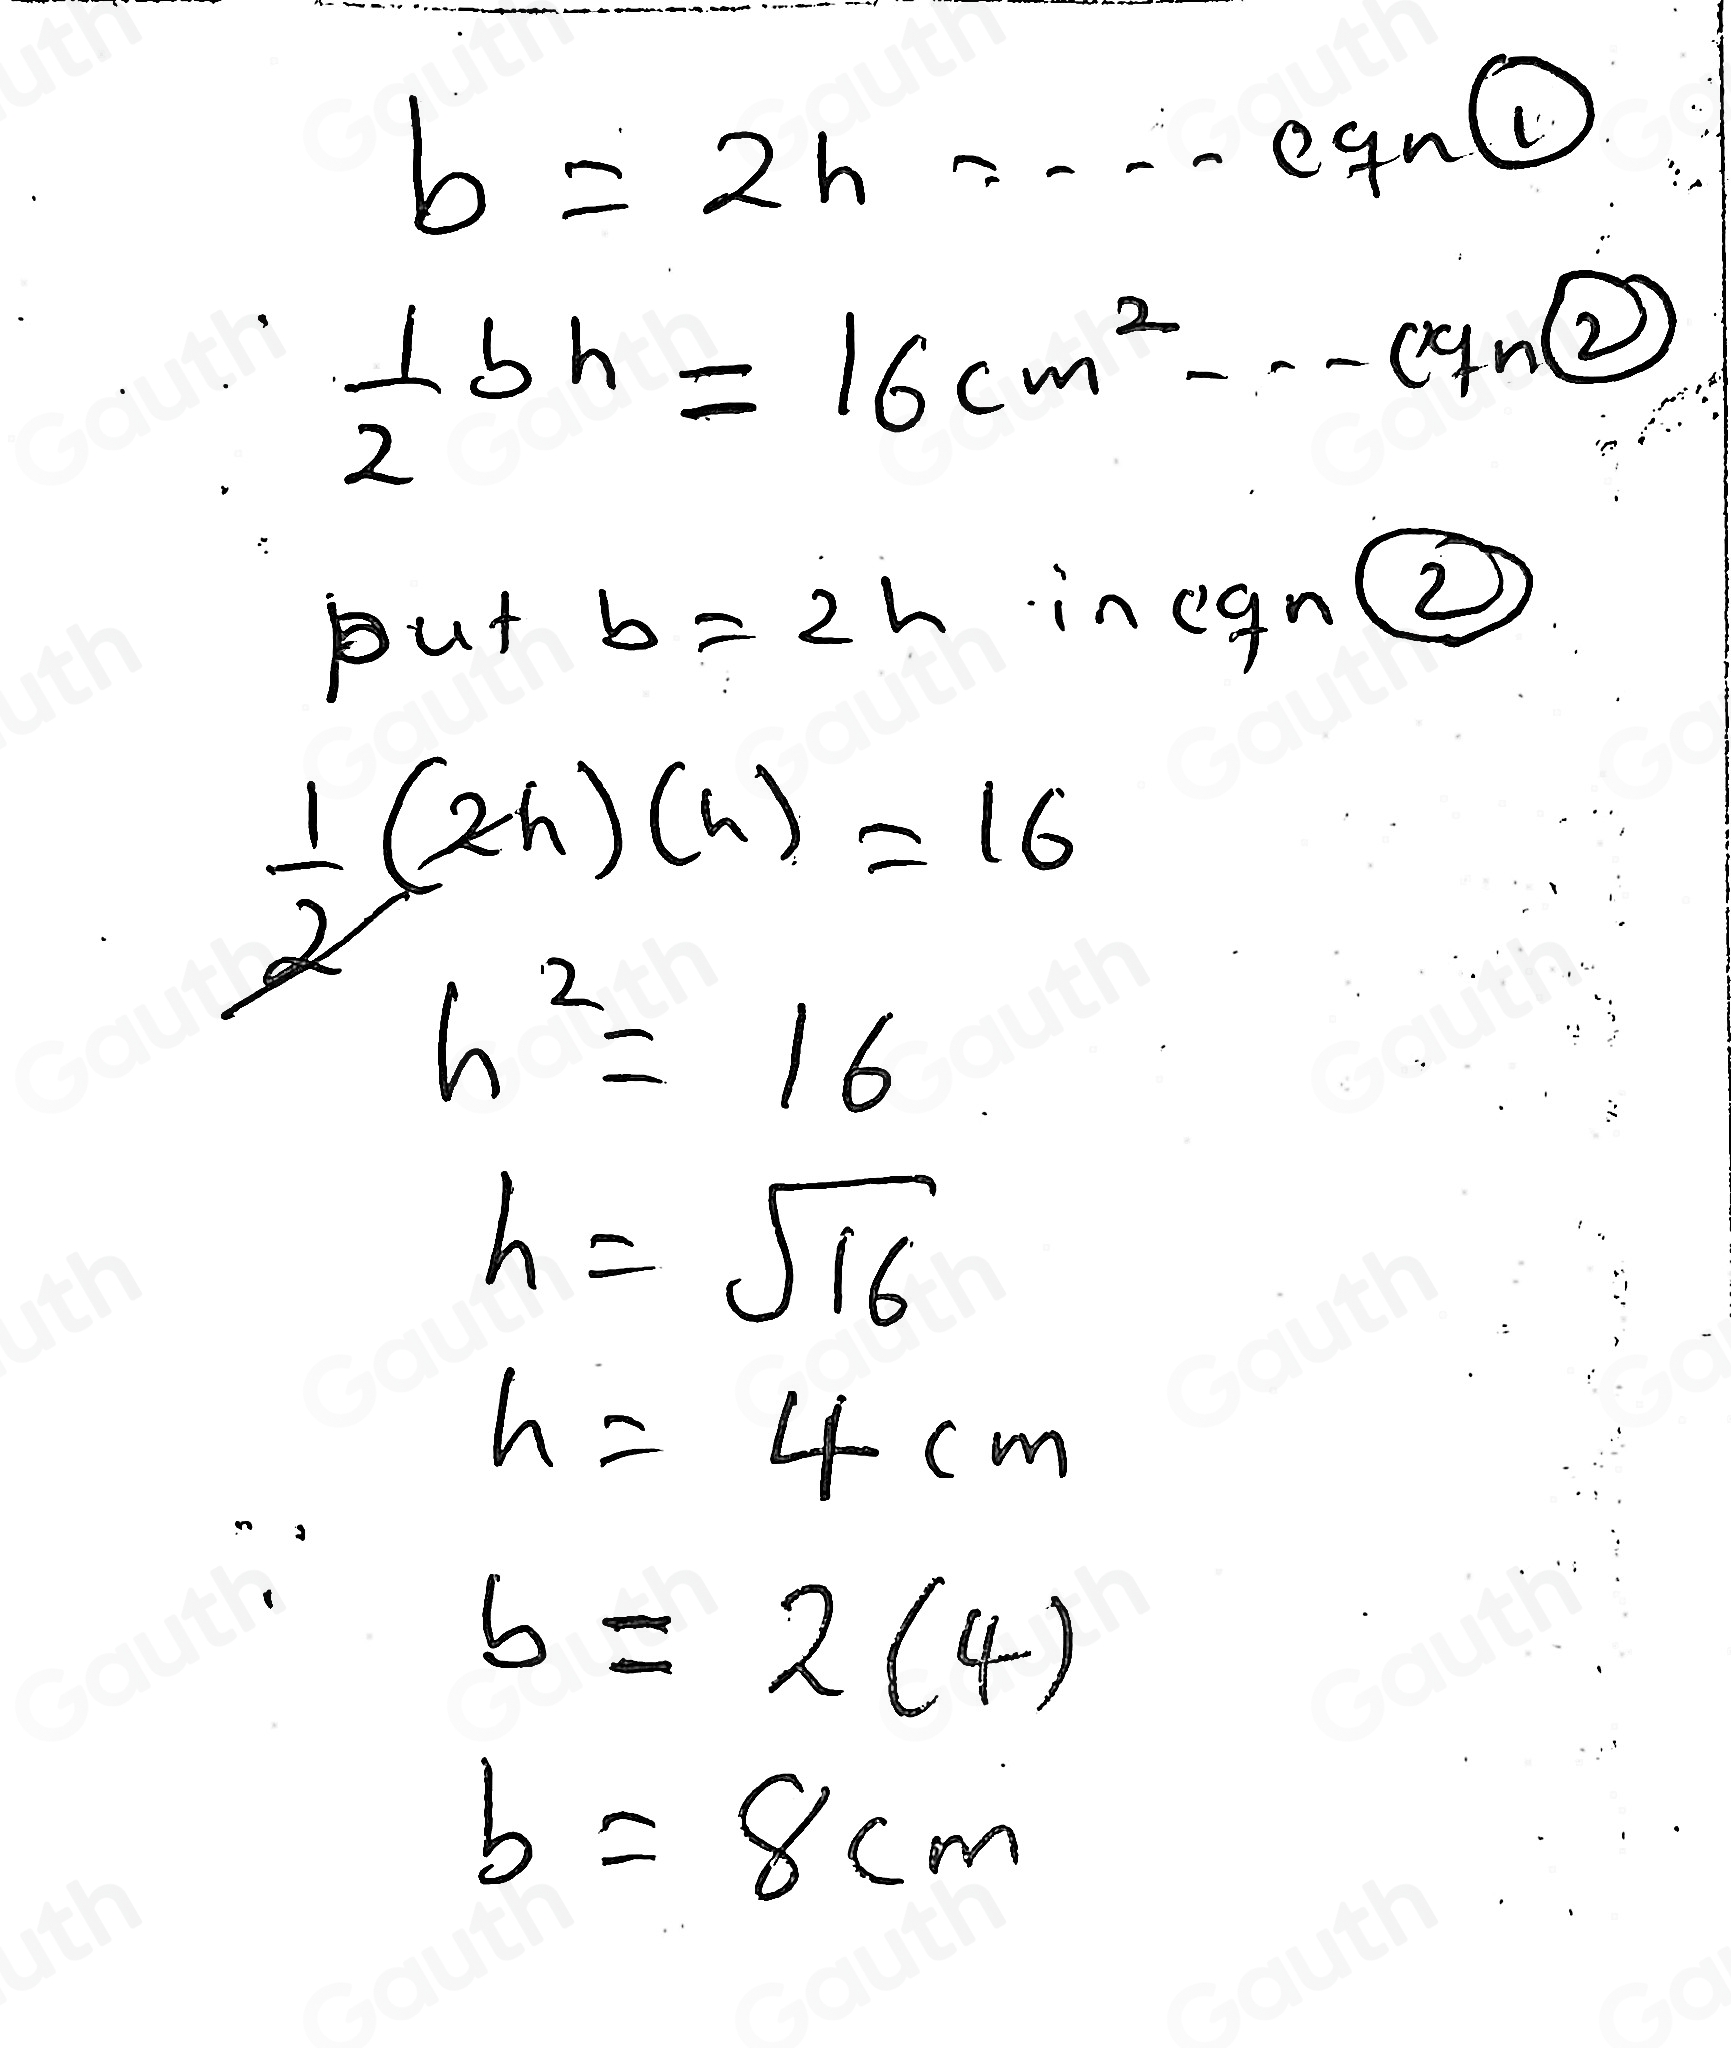 b = 2h ---- eqn ①
1/2 bh = 16cm² --- eqn ②
put b = 2h in eqn ②
1/2 (2h)(h) = 16
h² = 16
h = √16
h = 4 cm
b = 2(4)
b = 8cm